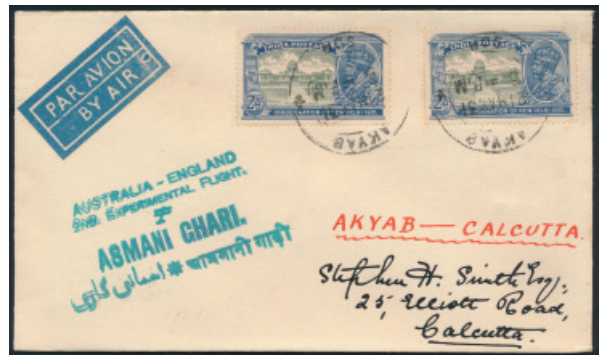 PAR AVION
BY AIR
INDIA POSTAGE
INAUGURATION OF NEW DELHI 1931
AKYAB
INDIA POSTAGE
INAUGURATION OF NEW DELHI 1931
AKYAB
AUSTRALIA - ENGLAND
2ND. EXPERIMENTAL FLIGHT.
ASMANI GHARI.
اسمانی گاڑی * आसमानी गाड़ी
AKYAB — CALCUTTA.
Stephen H. Smith Esq,
25, Elliott Road,
Calcutta.